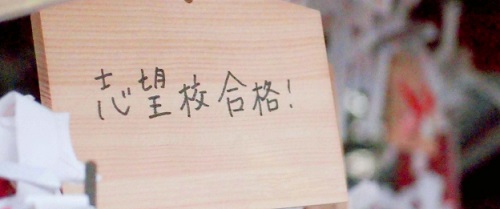 志望校合格!